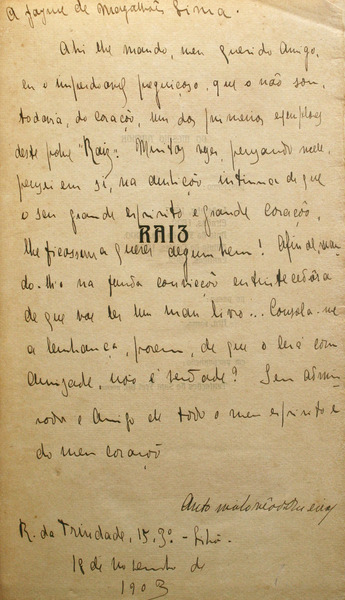 A Jayme de Magalhães Lima.
Ahi lhe mando, meu querido Amigo,
eu o imperdoavel preguiçoso, que o não sou,
todavia, do coração, um dos primeiros exemplares
deste pobre "Raiz". Muitas vezes, pensando nelle,
pensei em si, na intima de que
o seu grande espirito e grande coração,
lhe ficassem a querer algum bem!
RAIZ
do-lh'o na funda convicção entristecedora
de que vae ler um mau livro... Consola-me
a lembrança, porem, de que o lerá com
Amizade, não é verdade? Seu admi-
rador e Amigo de todo o meu espirito e
do meu coração
R. da Trindade, 15, 3º. -
18 de novembro de
1903